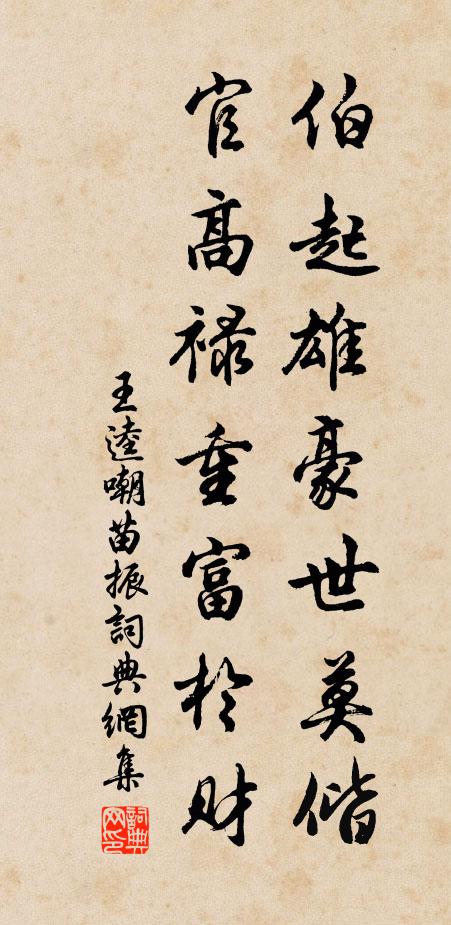 伯起雄豪世莫偕
官高祿重富於財
王逵嘲苗振詞典網集
詞典網印